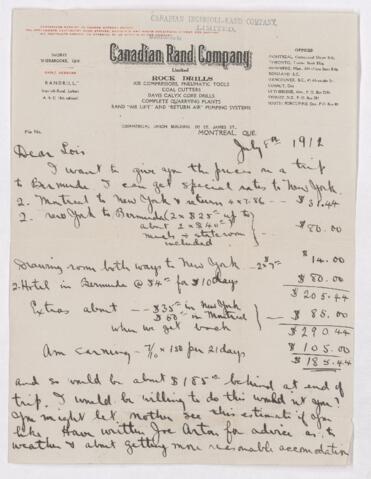 CANADIAN INGERSOLL-RAND COMPANY,
LIMITED.
WORKS
SHERBROOKE, QUE.
OFFICES
Canadian Rand Company
Limited
ROCK DRILLS
AIR COMPRESSORS, PNEUMATIC TOOLS
COAL CUTTERS
DAVIS CALYX CORE DRILLS
COMPLETE QUARRYING PLANTS
RAND "AIR LIFT" AND "RETURN AIR" PUMPING SYSTEMS
COMMERCIAL UNION BUILDING ST. JAMES ST.,
MONTREAL, QUE.
File No.
July 8th 1912
Dear Lois
I want to give you the prices on a trip
to Bermuda. I can get special rates to New York.
2. Montreal to New York & return 4 x 7.86 — $31.44
2. New York to Bermuda 2 x $25 up to
about 2 x $40
meals & stateroom
included
— $80.00
Drawing room both ways to New York — 2 x 7 $14.00
2. Hotel in Bermuda @ $4 for $10 days $80.00
$205.44
Extras about — $35 in New York
in Montreal
when we get back
— $85.00
$290.44
Am earning — 7/10 x 150 per 21 days $105.00
$185.44
and so would be about $185 behind at end of
trip. I would be willing to do this would not you?
You might let mother see this estimate if you
like. Have written Joe for advice as to
weather & about getting more reasonable accomodation